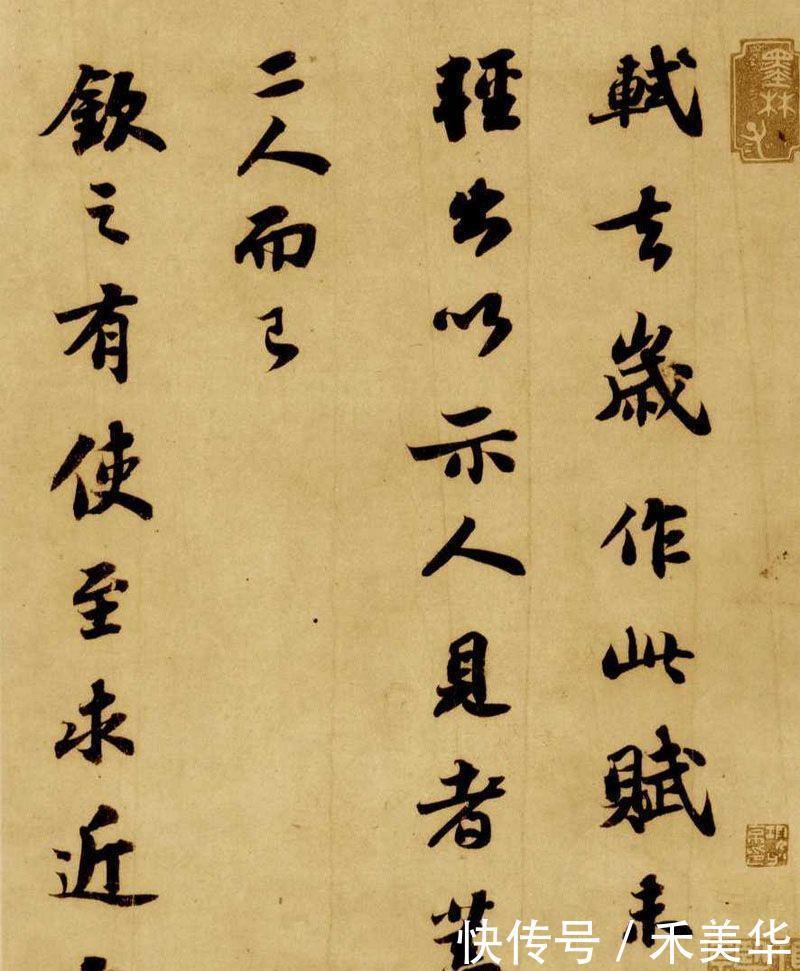 軾去歲作此賦未
輕出以示人見者蓋
二人而已
欽之有使至求近
墨林
快传号/禾美华